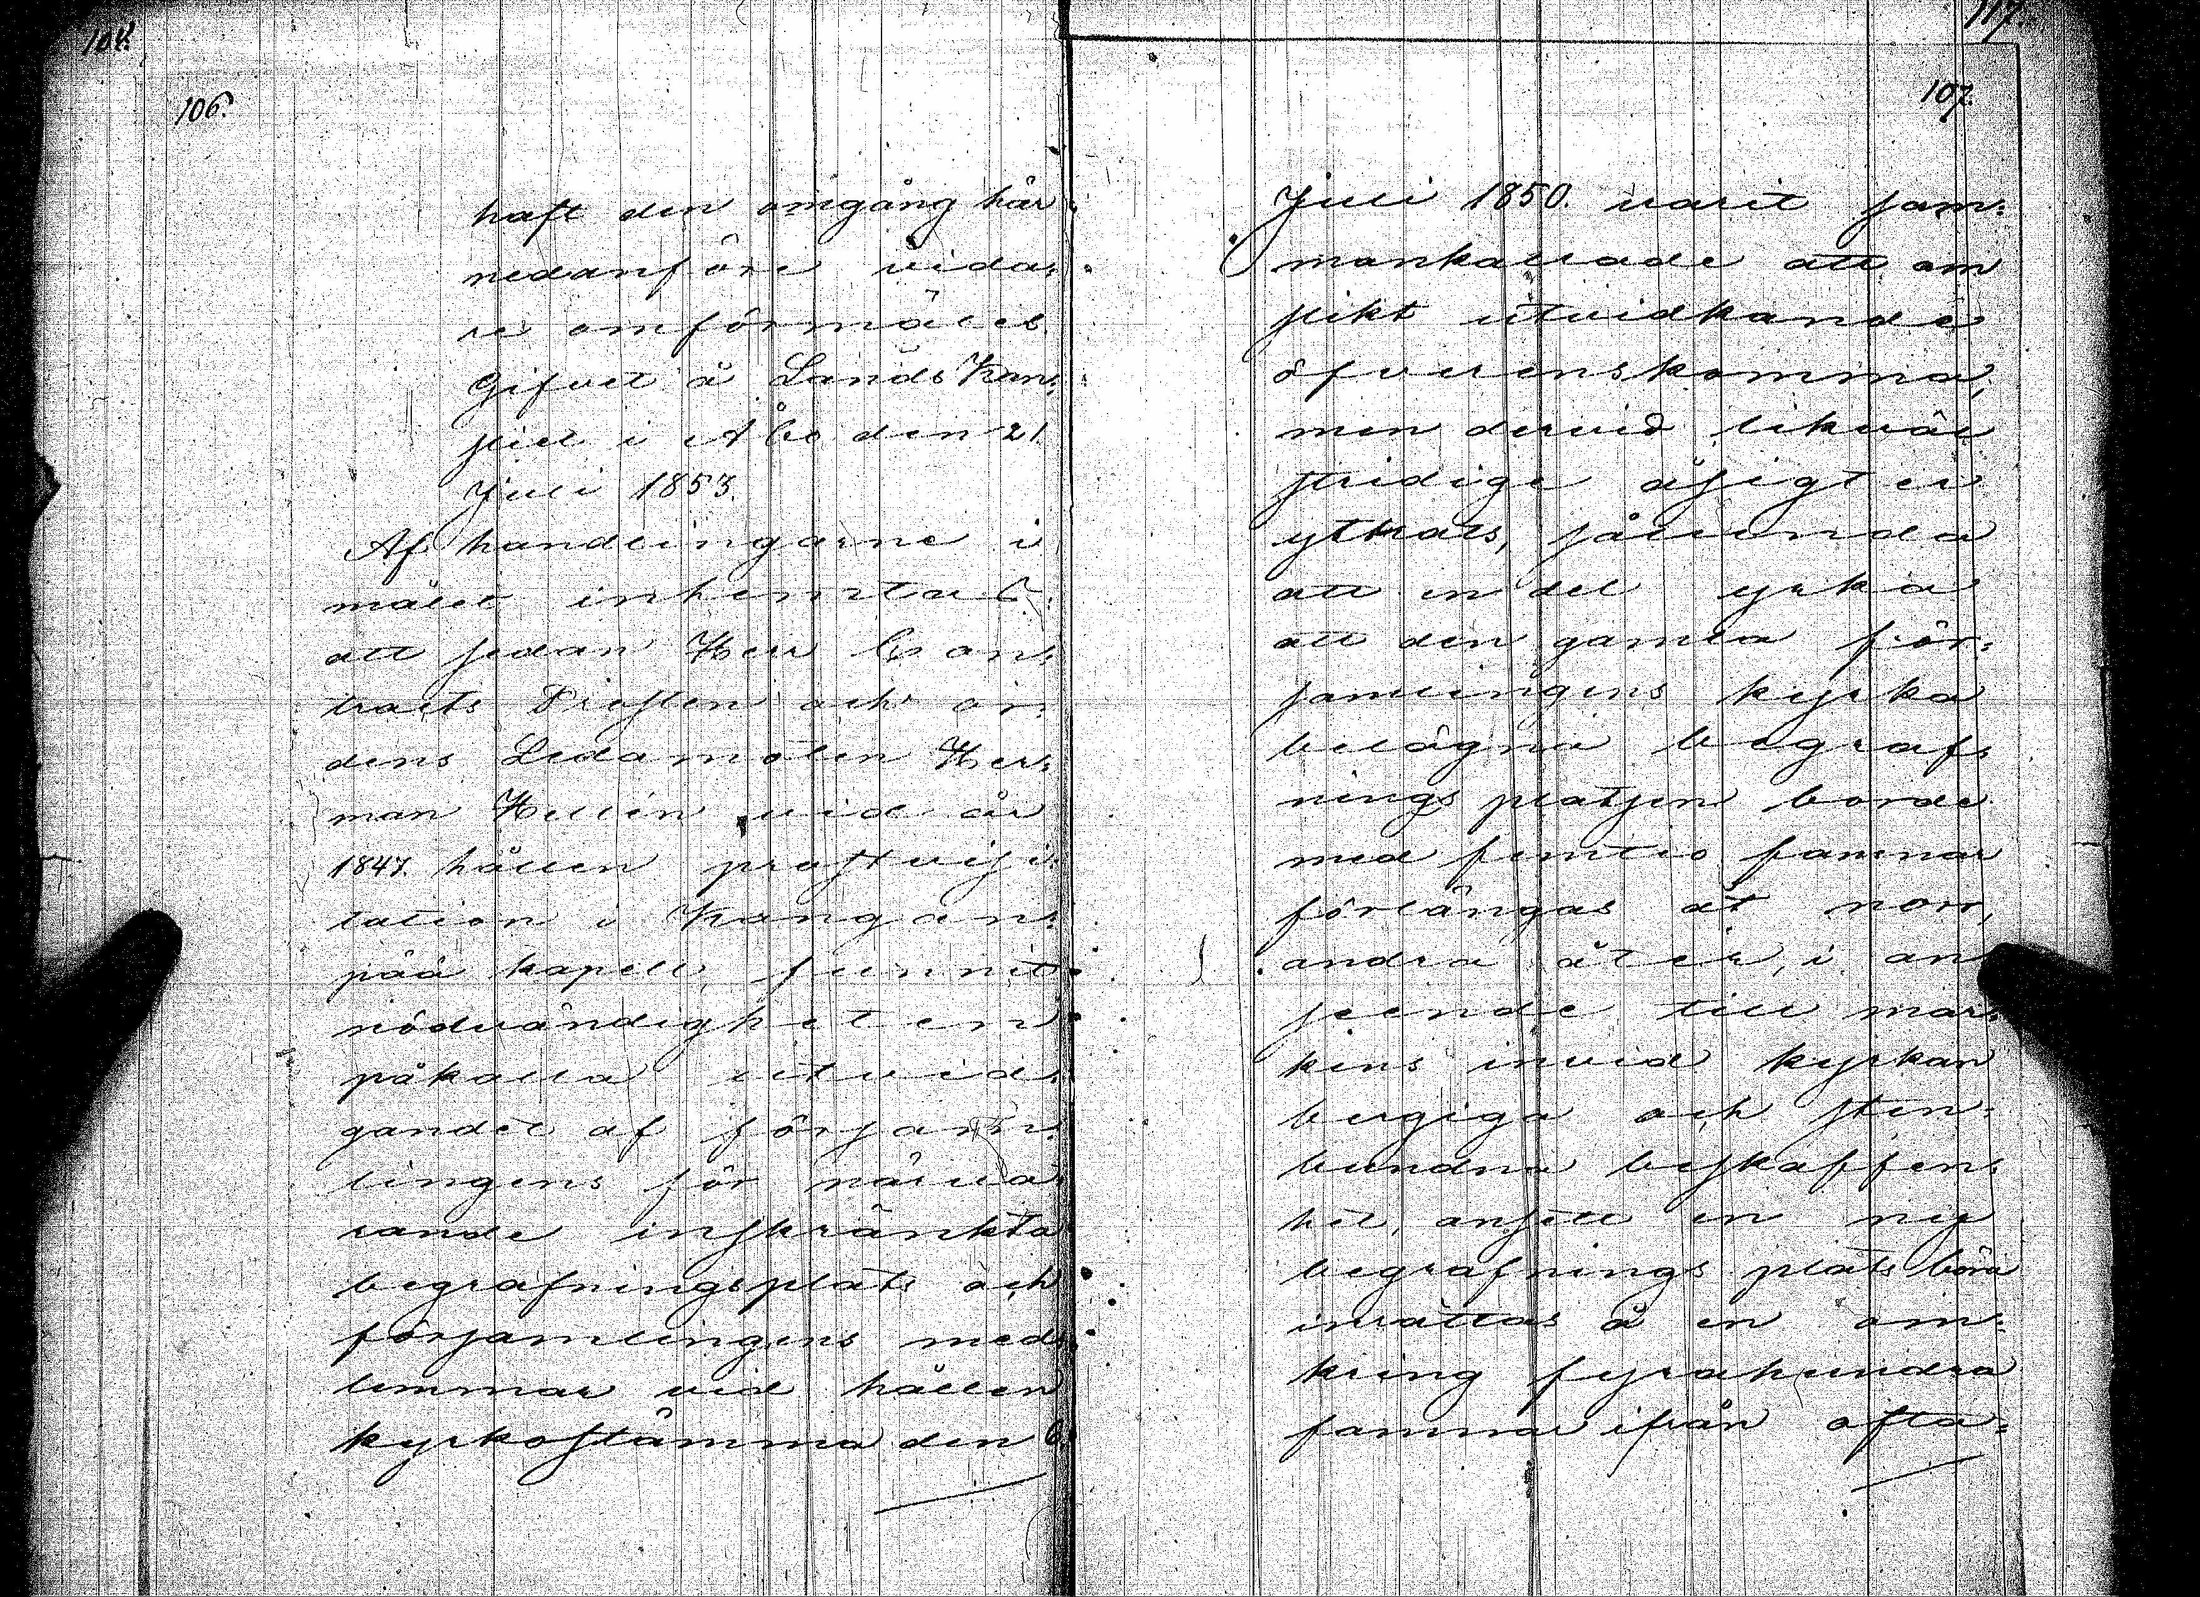 104.
106.
haft den omgång här
nedanföre vida:
re omförmäles.
Gifvet å Lands Kan:
sliet i Åbo den 21.
Juli 1853.
Af handlingarne i
målet inhemtas
att sedan Herr Con:
tracts Prosten och or:
dens Ledamoten Her:
man Hellén vid år
1847. hållen prostvisi:
tation i Kangan:
pää kapell, funnit
nödvändigheten
påkalla utvid:
gandet af försam:
lingens för närva:
rande inskränkta
begrafningsplats och
församlingens med:
lemmar vid hållen
kyrkostämma den 6.
117.
107.
Juli 1850. varit sam:
mankallade att om
slikt utvidkande
öfverenskomma,
men dervid likväl
stridige åsigter
yttrats, sålunda
att en del yrka
att den gamla för:
samlingens kyrka
belägna begraf:
nings platsen borde
med femtio famnar
förlängas åt norr,
andra åter, i an
seende till mar:
kens invid kyrkan
bergiga och sten:
bundna beskaffen:
het, ansett en ny
begrafnings plats böra
inrättas å en om:
kring fyrahundra
famnar ifrån ofta: